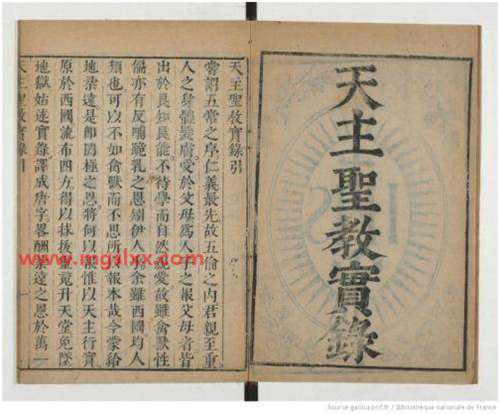 天主聖教實錄
天主聖教實錄引
嘗謂五常之序仁義最先故五倫之內君親至重
人之身體髮膚受於父母為人子之報父母者皆
出於良知良能不待學而自然親愛故雖禽獸性
偏亦有反哺跪乳之恩矧伊人乎余雖西國均人
類也可以不如禽獸而不思所以報本哉今蒙給
地柔遠是即罔極之恩將何以報惟以天主行實
原於西國流布四方得以捄拔靈魂升天堂免墮
地獄姑述實錄譯成唐字畧酬柔遠之恩於萬一
天主聖教實錄引
www.mgslxx.com
Source gallica.bnf.fr / Bibliothèque nationale de France